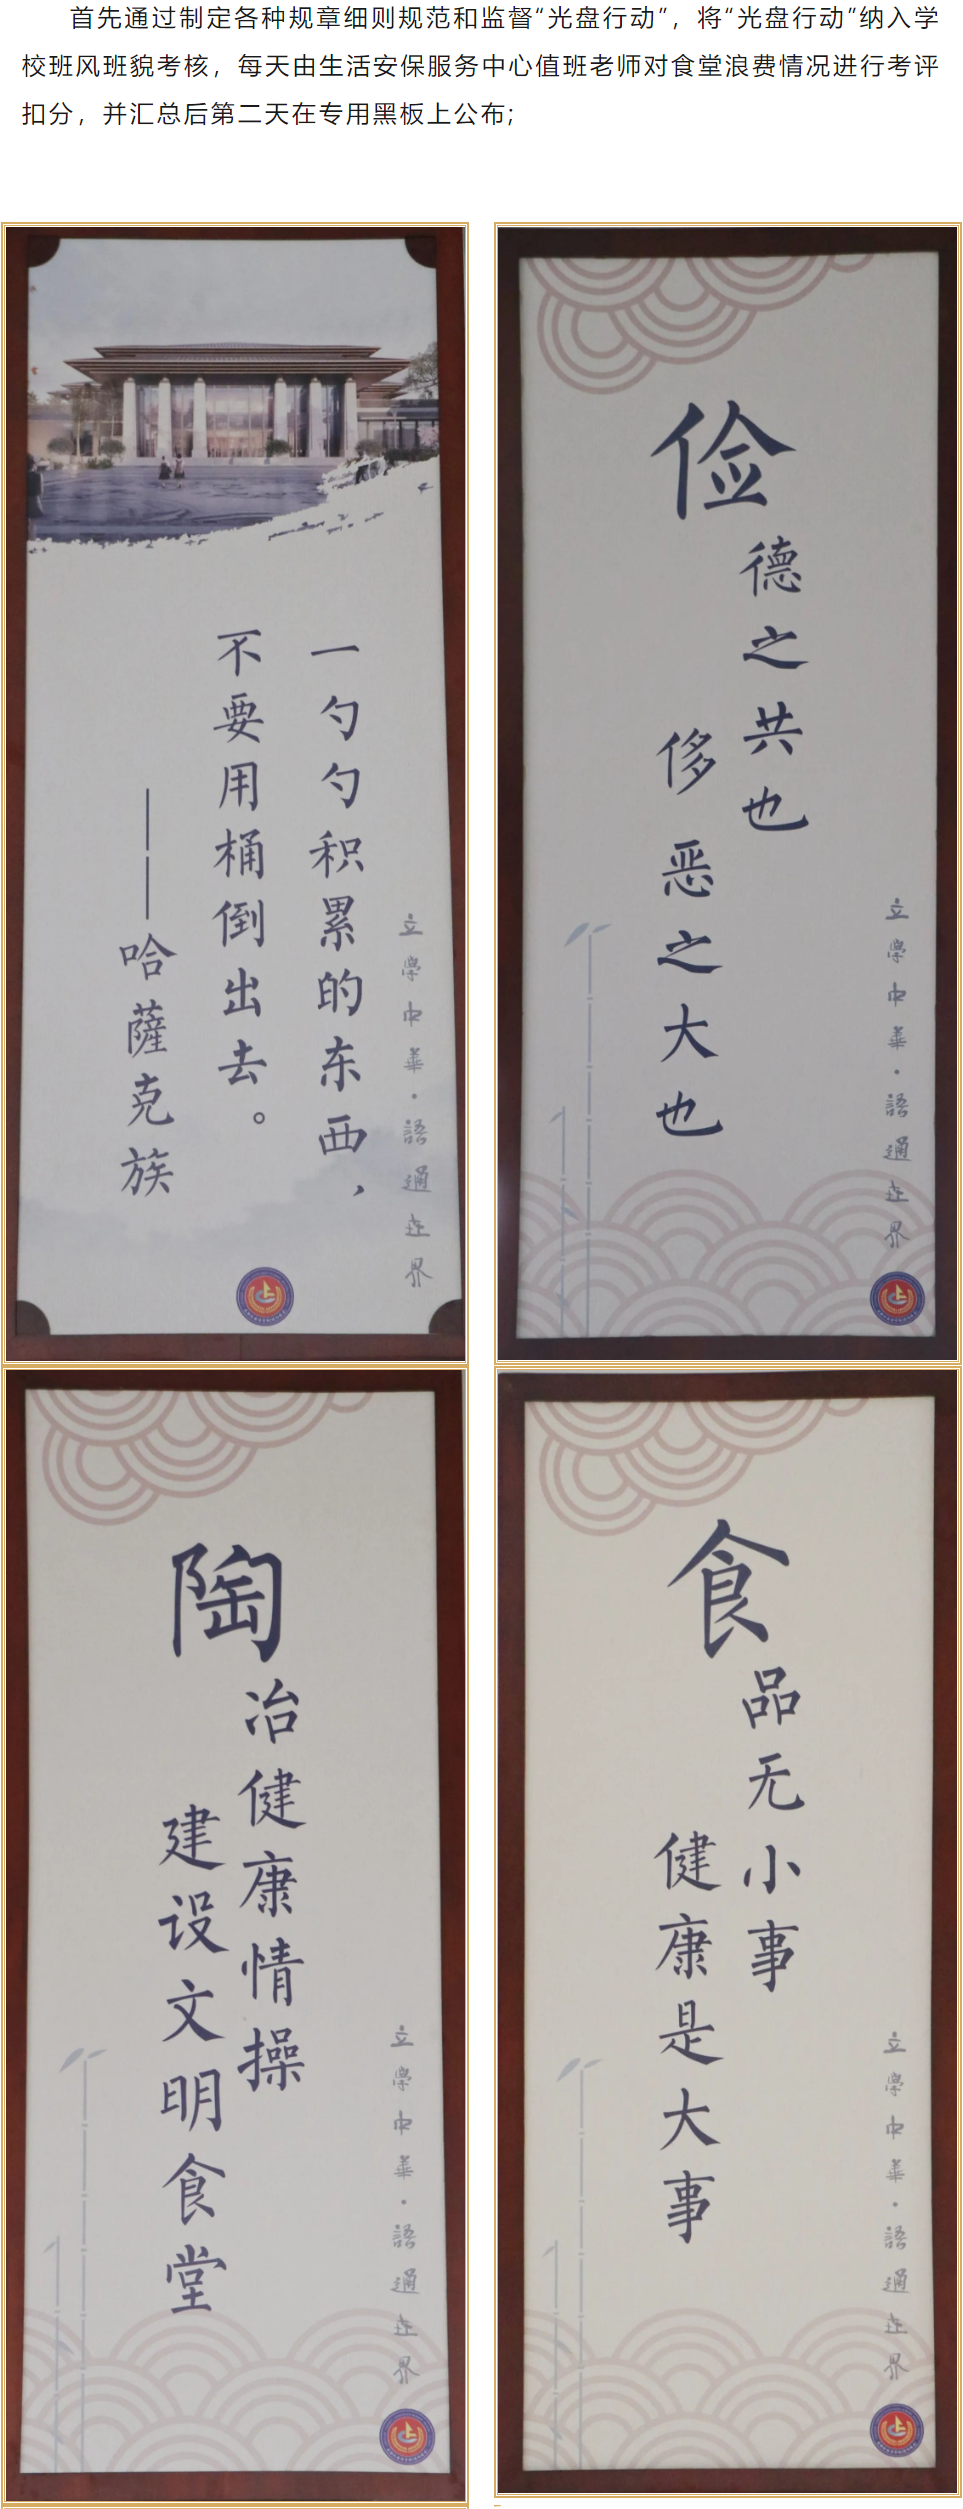 首先通过制定各种规章细则规范和监督“光盘行动”，将“光盘行动”纳入学
校班风班貌考核，每天由生活安保服务中心值班老师对食堂浪费情况进行考评
扣分，并汇总后第二天在专用黑板上公布;
一勺勺积累的东西，
不要用桶倒出去。
——哈薩克族
立學中華·語通世界
俭
德之共也
侈恶之大也
立學中華·語通世界
陶
冶健康情操
建设文明食堂
立學中華·語通世界
食
品无小事
健康是大事
立學中華·語通世界